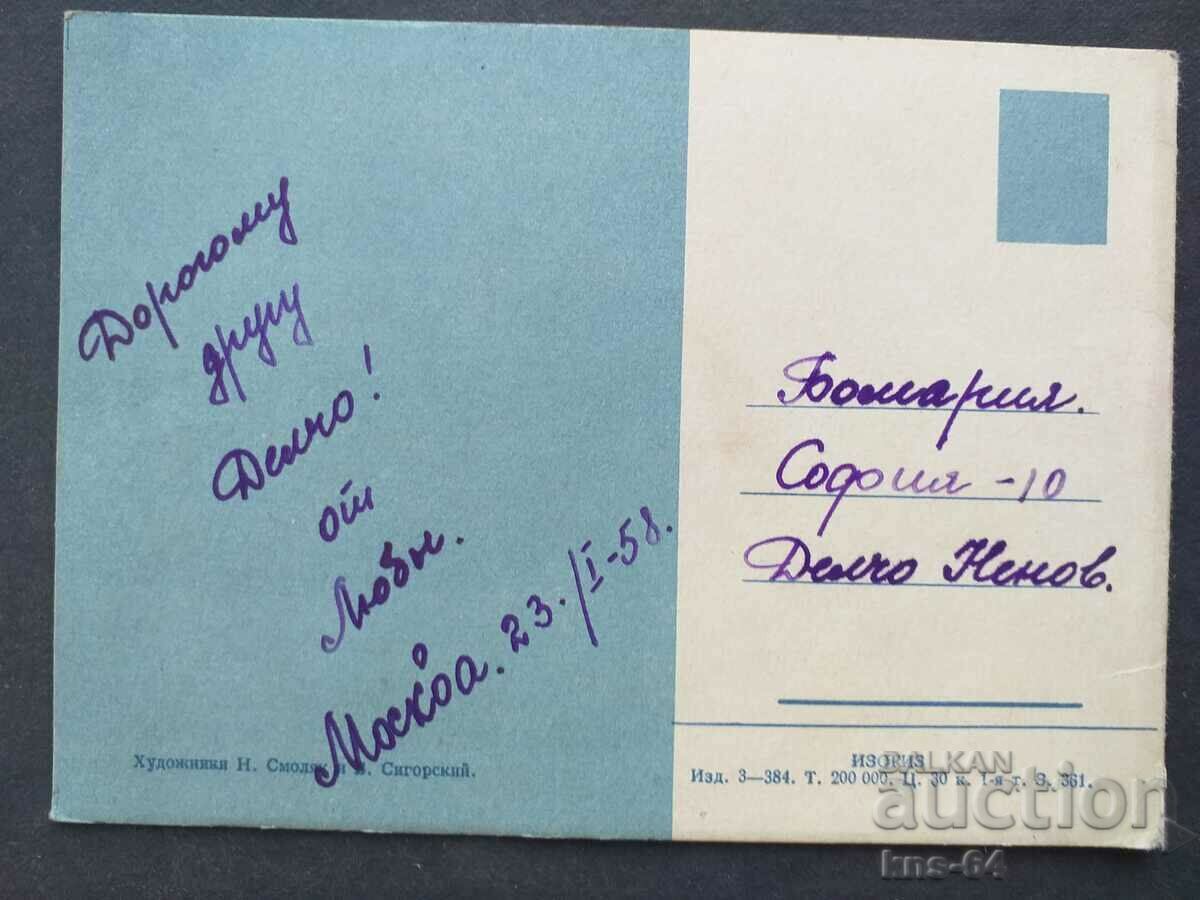 Дорогому
другу
Делчо!
от
Любы.
Москва. 23./I-58.
Художники Н. Смоляк и В. Сигорский.
Болгария.
София - 10
Делчо Ненов.
ИЗОГИЗ
Изд. 3—384. Т. 200 000. Ц. 30 к. 1-я т. З. 361.
BALKAN
auction
kns-64